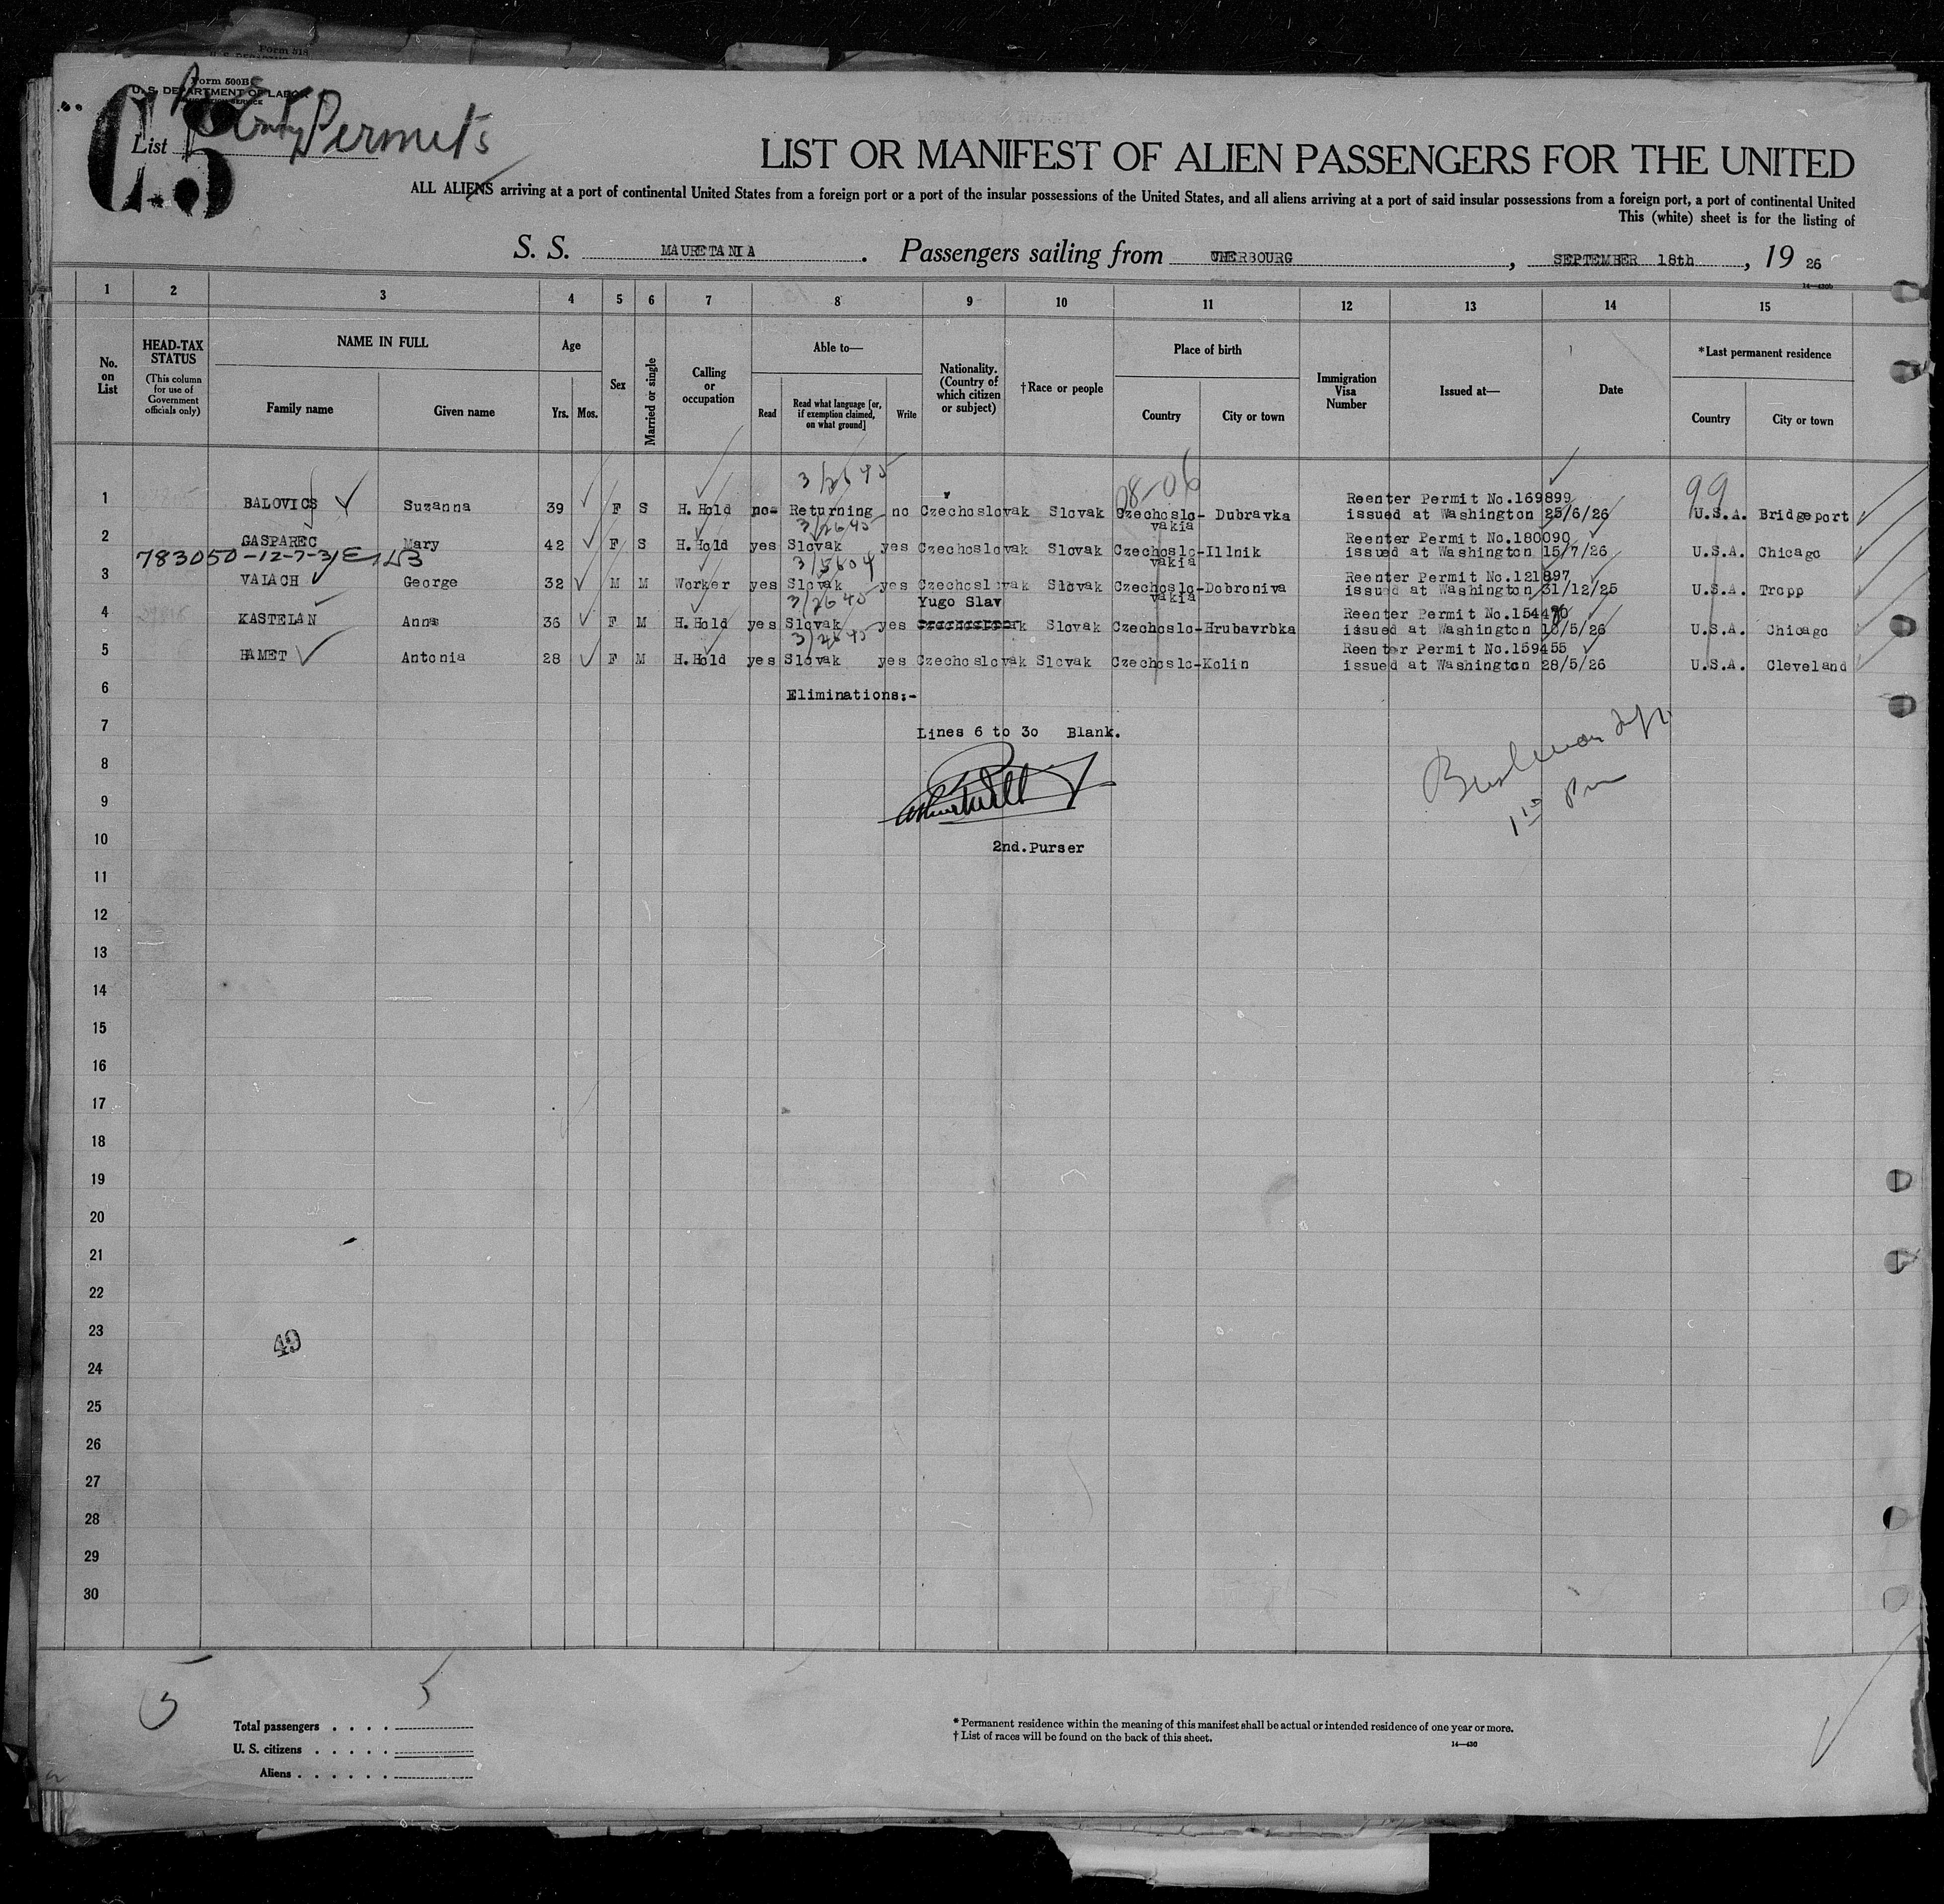 Form 514
Form 500B
U. S. DEPARTMENT OF LABOR
C.5
List
Permits
LIST OR MANIFEST OF ALIEN PASSENGERS FOR THE UNITED
ALL ALIENS arriving at a port of continental United States from a foreign port or a port of the insular possessions of the United States, and all aliens arriving at a port of said insular possessions from a foreign port, a port of continental United
This (white) sheet is for the listing of
S. S. MAURETANIA . Passengers sailing from CHERBOURG , SEPTEMBER 18th , 19 26
14—430b
1 2 3 4 5 6 7 8 9 10 11 12 13 14 15
No. on List
HEAD-TAX STATUS
(This column for use of Government officials only)
NAME IN FULL
Family name Given name
Age
Yrs. Mos.
Sex
Married or single
Calling or occupation
Able to—
Read Read what language [or, if exemption claimed, on what ground] Write
Nationality. (Country of which citizen or subject)
†Race or people
Place of birth
Country City or town
Immigration Visa Number
Issued at—
Date
*Last permanent residence
Country City or town
3/2645 08-06 99
1 BALOVICS Suzanna 39 F S H.Hold no- Returning no Czechoslovak Slovak Czechoslo-vakia Dubravka Reenter Permit No.169899 issued at Washington 25/6/26 U.S.A. Bridgeport
3/2645
2 GASPAREC Mary 42 F S H.Hold yes Slovak yes Czechoslovak Slovak Czechoslo-vakia Illnik Reenter Permit No.180090 issued at Washington 15/7/26 U.S.A. Chicago
783050-12-7-31 3/5604
3 VALACH George 32 M M Worker yes Slovak yes Czechoslovak Slovak Czechoslo-vakia Dobroniva Reenter Permit No.121897 issued at Washington 31/12/25 U.S.A. Tropp
3/2645 Yugo Slav
4 KASTELAN Anna 36 F M H.Hold yes Slovak yes Czechoslovak Slovak Czechoslo-Hrubavrbka Reenter Permit No.154470 issued at Washington 10/5/26 U.S.A. Chicago
3/2645
5 HAMET Antonia 28 F M H.Hold yes Slovak yes Czechoslovak Slovak Czechoslo-Kolin Reenter Permit No.159455 issued at Washington 28/5/26 U.S.A. Cleveland
6 Eliminations:-
7 Lines 6 to 30 Blank.
8
9
10 2nd.Purser
11
12
13
14
15
16
17
18
19
20
21
22
23 49
24
25
26
27
28
29
30
5 5
Total passengers . . . .
U. S. citizens . . . . .
Aliens . . . . . .
* Permanent residence within the meaning of this manifest shall be actual or intended residence of one year or more.
† List of races will be found on the back of this sheet.
14—430